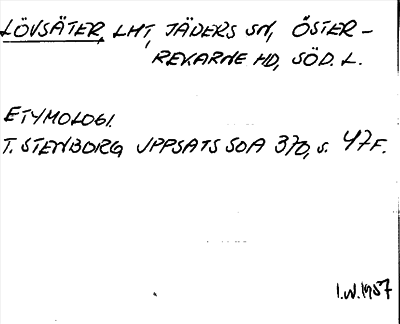 LÖVSÄTER, LHT, JÄDERS SN, ÖSTER-
REKARNE HD, SÖD. L.
ETYMOLOGI.
T. STENBORG UPPSATS SOA 370, s. 47F.
I.W.1957